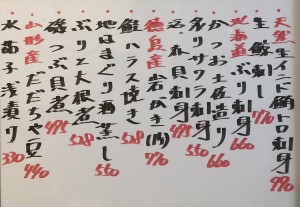 天然生インド鮪トロ刺身 990
生鯨刺し 770
北海道ぶり刺身 660
かつお土佐造り 660
釣りサクラ刺身 550
活赤貝刺身 495
徳島産岩がき(内) 770
鮭ハラス焼き 528
地はまぐり酒蒸し 550
ぶりと大根煮 528
磯つぶ貝煮 495
山形産だだちゃ豆 440
水茄子浅漬り 330